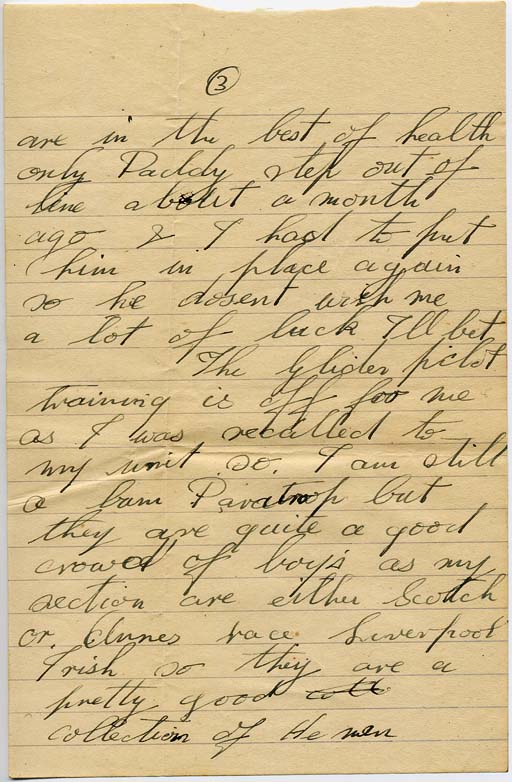 3
are in the best of health
only Paddy step out of
line about a month
ago & I had to put
him in place again
so he dosent wish me
a lot of luck I'll bet
The Glider pilot
training is off for me
as I was recalled to
my unit so. I am still
a bam Paratrop but
they are quite a good
crowd of boys as my
section are either Scotch
or. Annes race Liverpool
Irish so they are a
pretty good
collection of He men